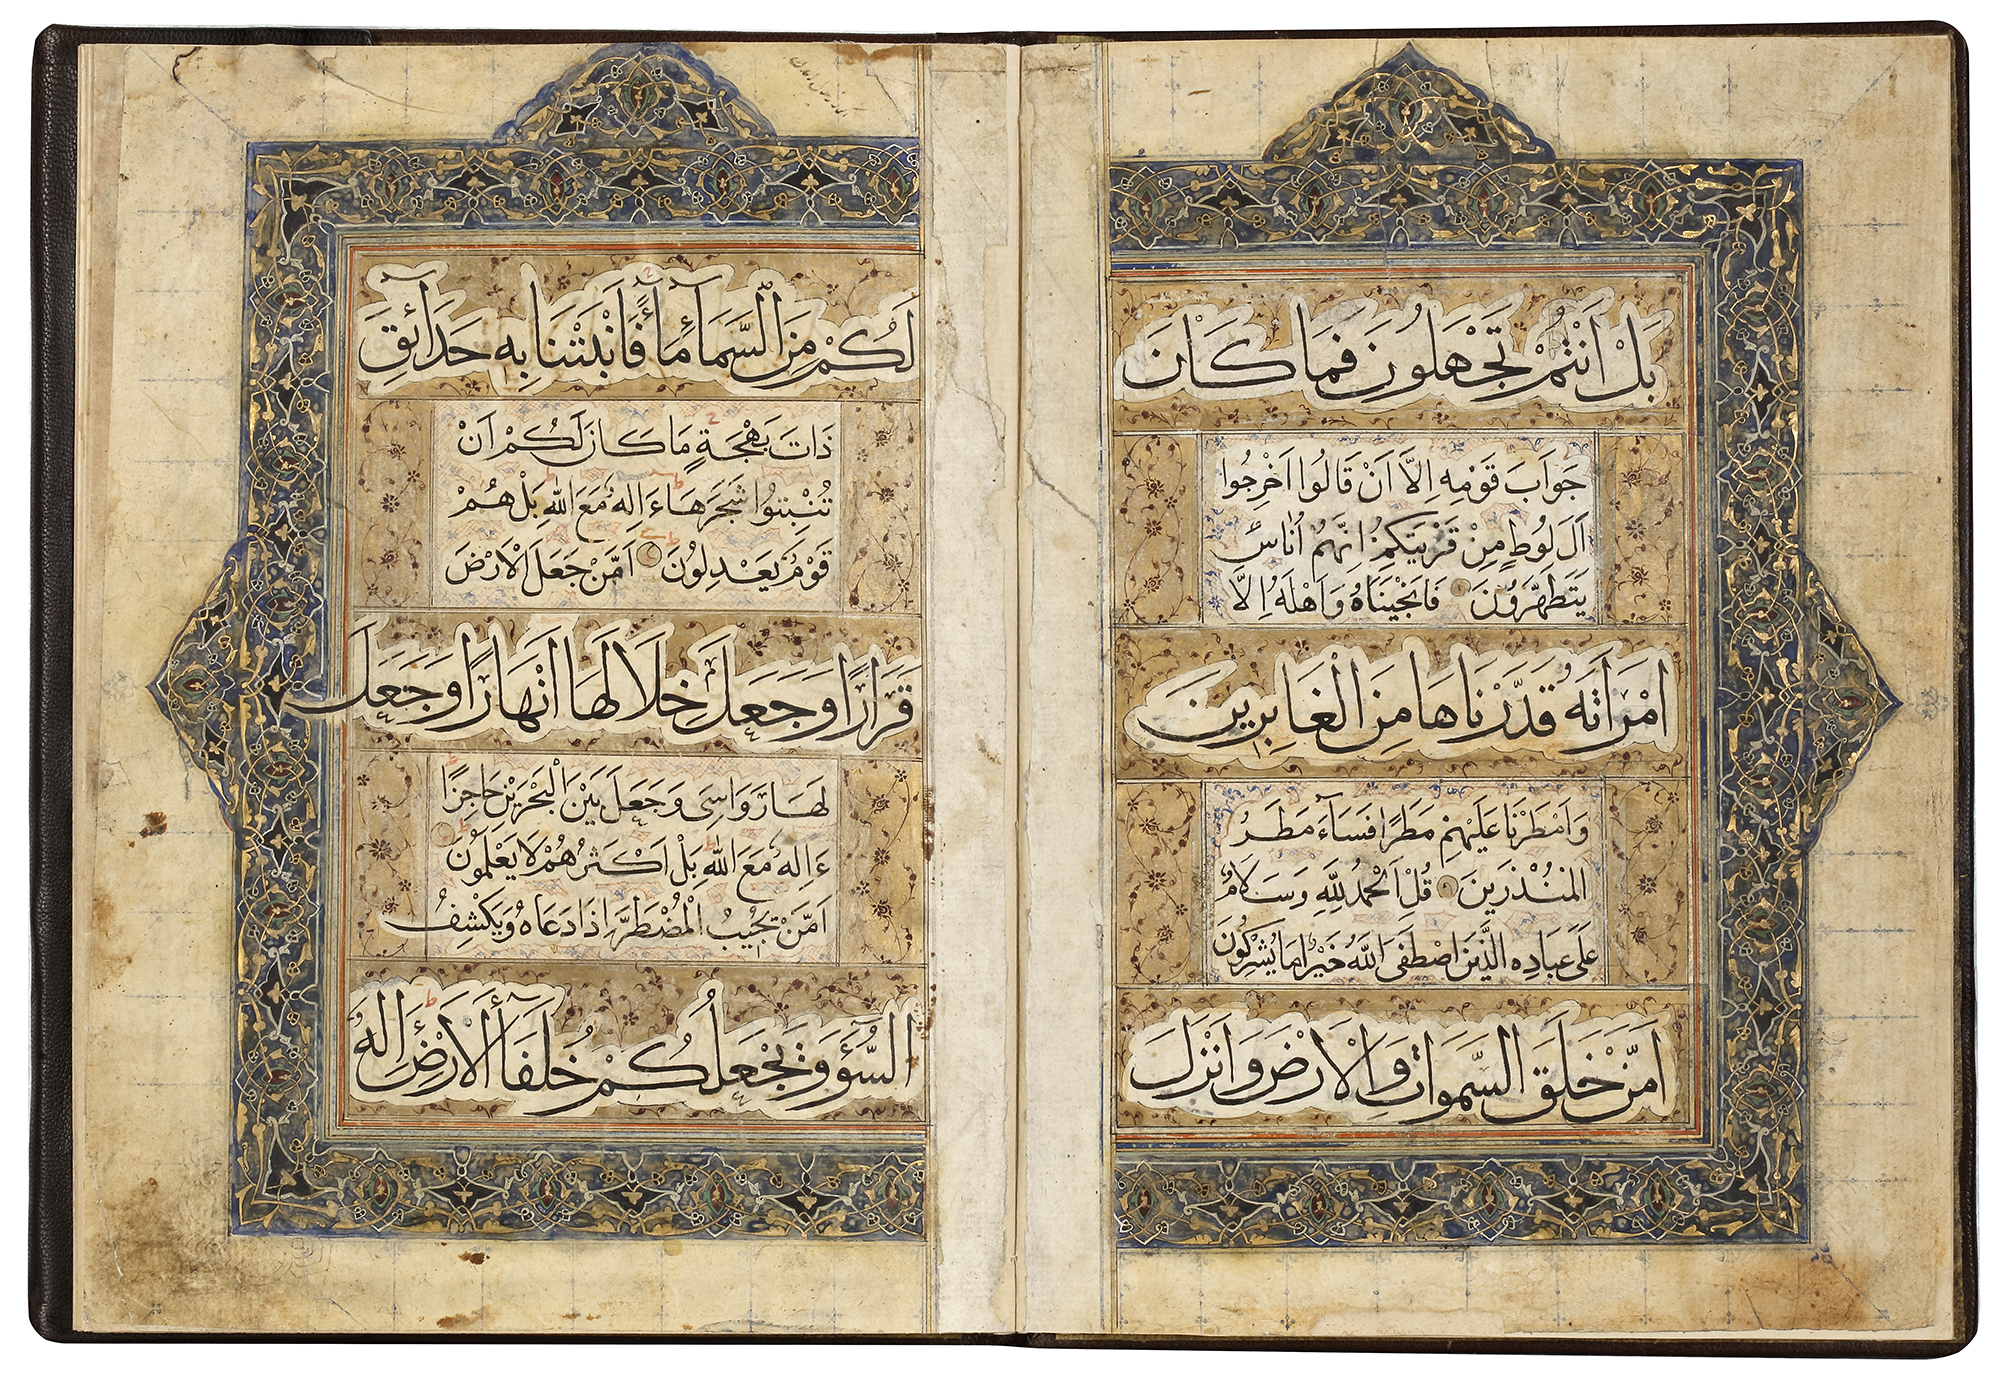 بَلْ اَنْتُمْ تَجْهَلُونَ فَمَا كَانَ
جَوَابَ قَوْمِهِ اِلَّا اَنْ قَالُوا اَخْرِجُوا
آلَ لُوطٍ مِنْ قَرْيَتِكُمْ اِنَّهُمْ اُنَاسٌ
يَتَطَهَّرُونَ فَاَنْجَيْنَاهُ وَاَهْلَهُ اِلَّا
امْرَاَتَهُ قَدَّرْنَاهَا مِنَ الْغَابِرِينَ
وَاَمْطَرْنَا عَلَيْهِمْ مَطَرًا فَسَاءَ مَطَرُ
الْمُنْذَرِينَ قُلِ الْحَمْدُ لِلّٰهِ وَسَلَامٌ
عَلَى عِبَادِهِ الَّذِينَ اصْطَفَى اللّٰهُ خَيْرٌ اَمَّا يُشْرِكُونَ
اَمَّنْ خَلَقَ السَّمَوَاتِ وَالْاَرْضَ وَاَنْزَلَ
لَكُمْ مِنَ السَّمَآءِ مَآءً فَاَنْبَتْنَا بِهِ حَدَآئِقَ
ذَاتَ بَهْجَةٍ مَا كَانَ لَكُمْ اَنْ
تُنْبِتُوا شَجَرَهَا ءَاِلَهٌ مَعَ اللّٰهِ بَلْ هُمْ
قَوْمٌ يَعْدِلُونَ اَمَّنْ جَعَلَ الْاَرْضَ
قَرَارًا وَجَعَلَ خِلَالَهَا اَنْهَارًا وَجَعَلَ
لَهَا رَوَاسِيَ وَجَعَلَ بَيْنَ الْبَحْرَيْنِ حَاجِزًا
ءَاِلَهٌ مَعَ اللّٰهِ بَلْ اَكْثَرُهُمْ لَا يَعْلَمُونَ
اَمَّنْ يُجِيبُ الْمُضْطَرَّ اِذَا دَعَاهُ وَيَكْشِفُ
السُّوٓءَ وَيَجْعَلُكُمْ خُلَفَآءَ الْاَرْضِ ءَاِلَهٌ